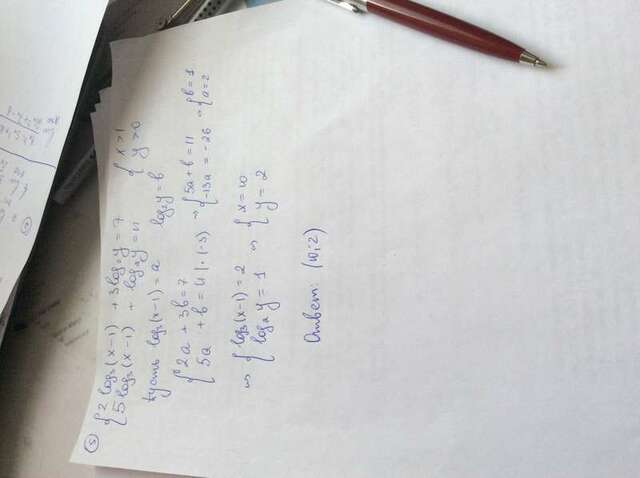 5
{ 2 log₃(x-1) + 3log₂y = 7 { x>1
5 log₃(x-1) + log₂y = 11 y>0
Пусть log₃(x-1) = a log₂y = b
{ 2a + 3b = 7 → { 5a + b = 11 → { b = 1
5a + b = 11 | · (-3) -13a = -26 a = 2
⇒ { log₃(x-1) = 2 ⇒ { x = 10
log₂ y = 1 y = 2
Ответ: (10; 2)